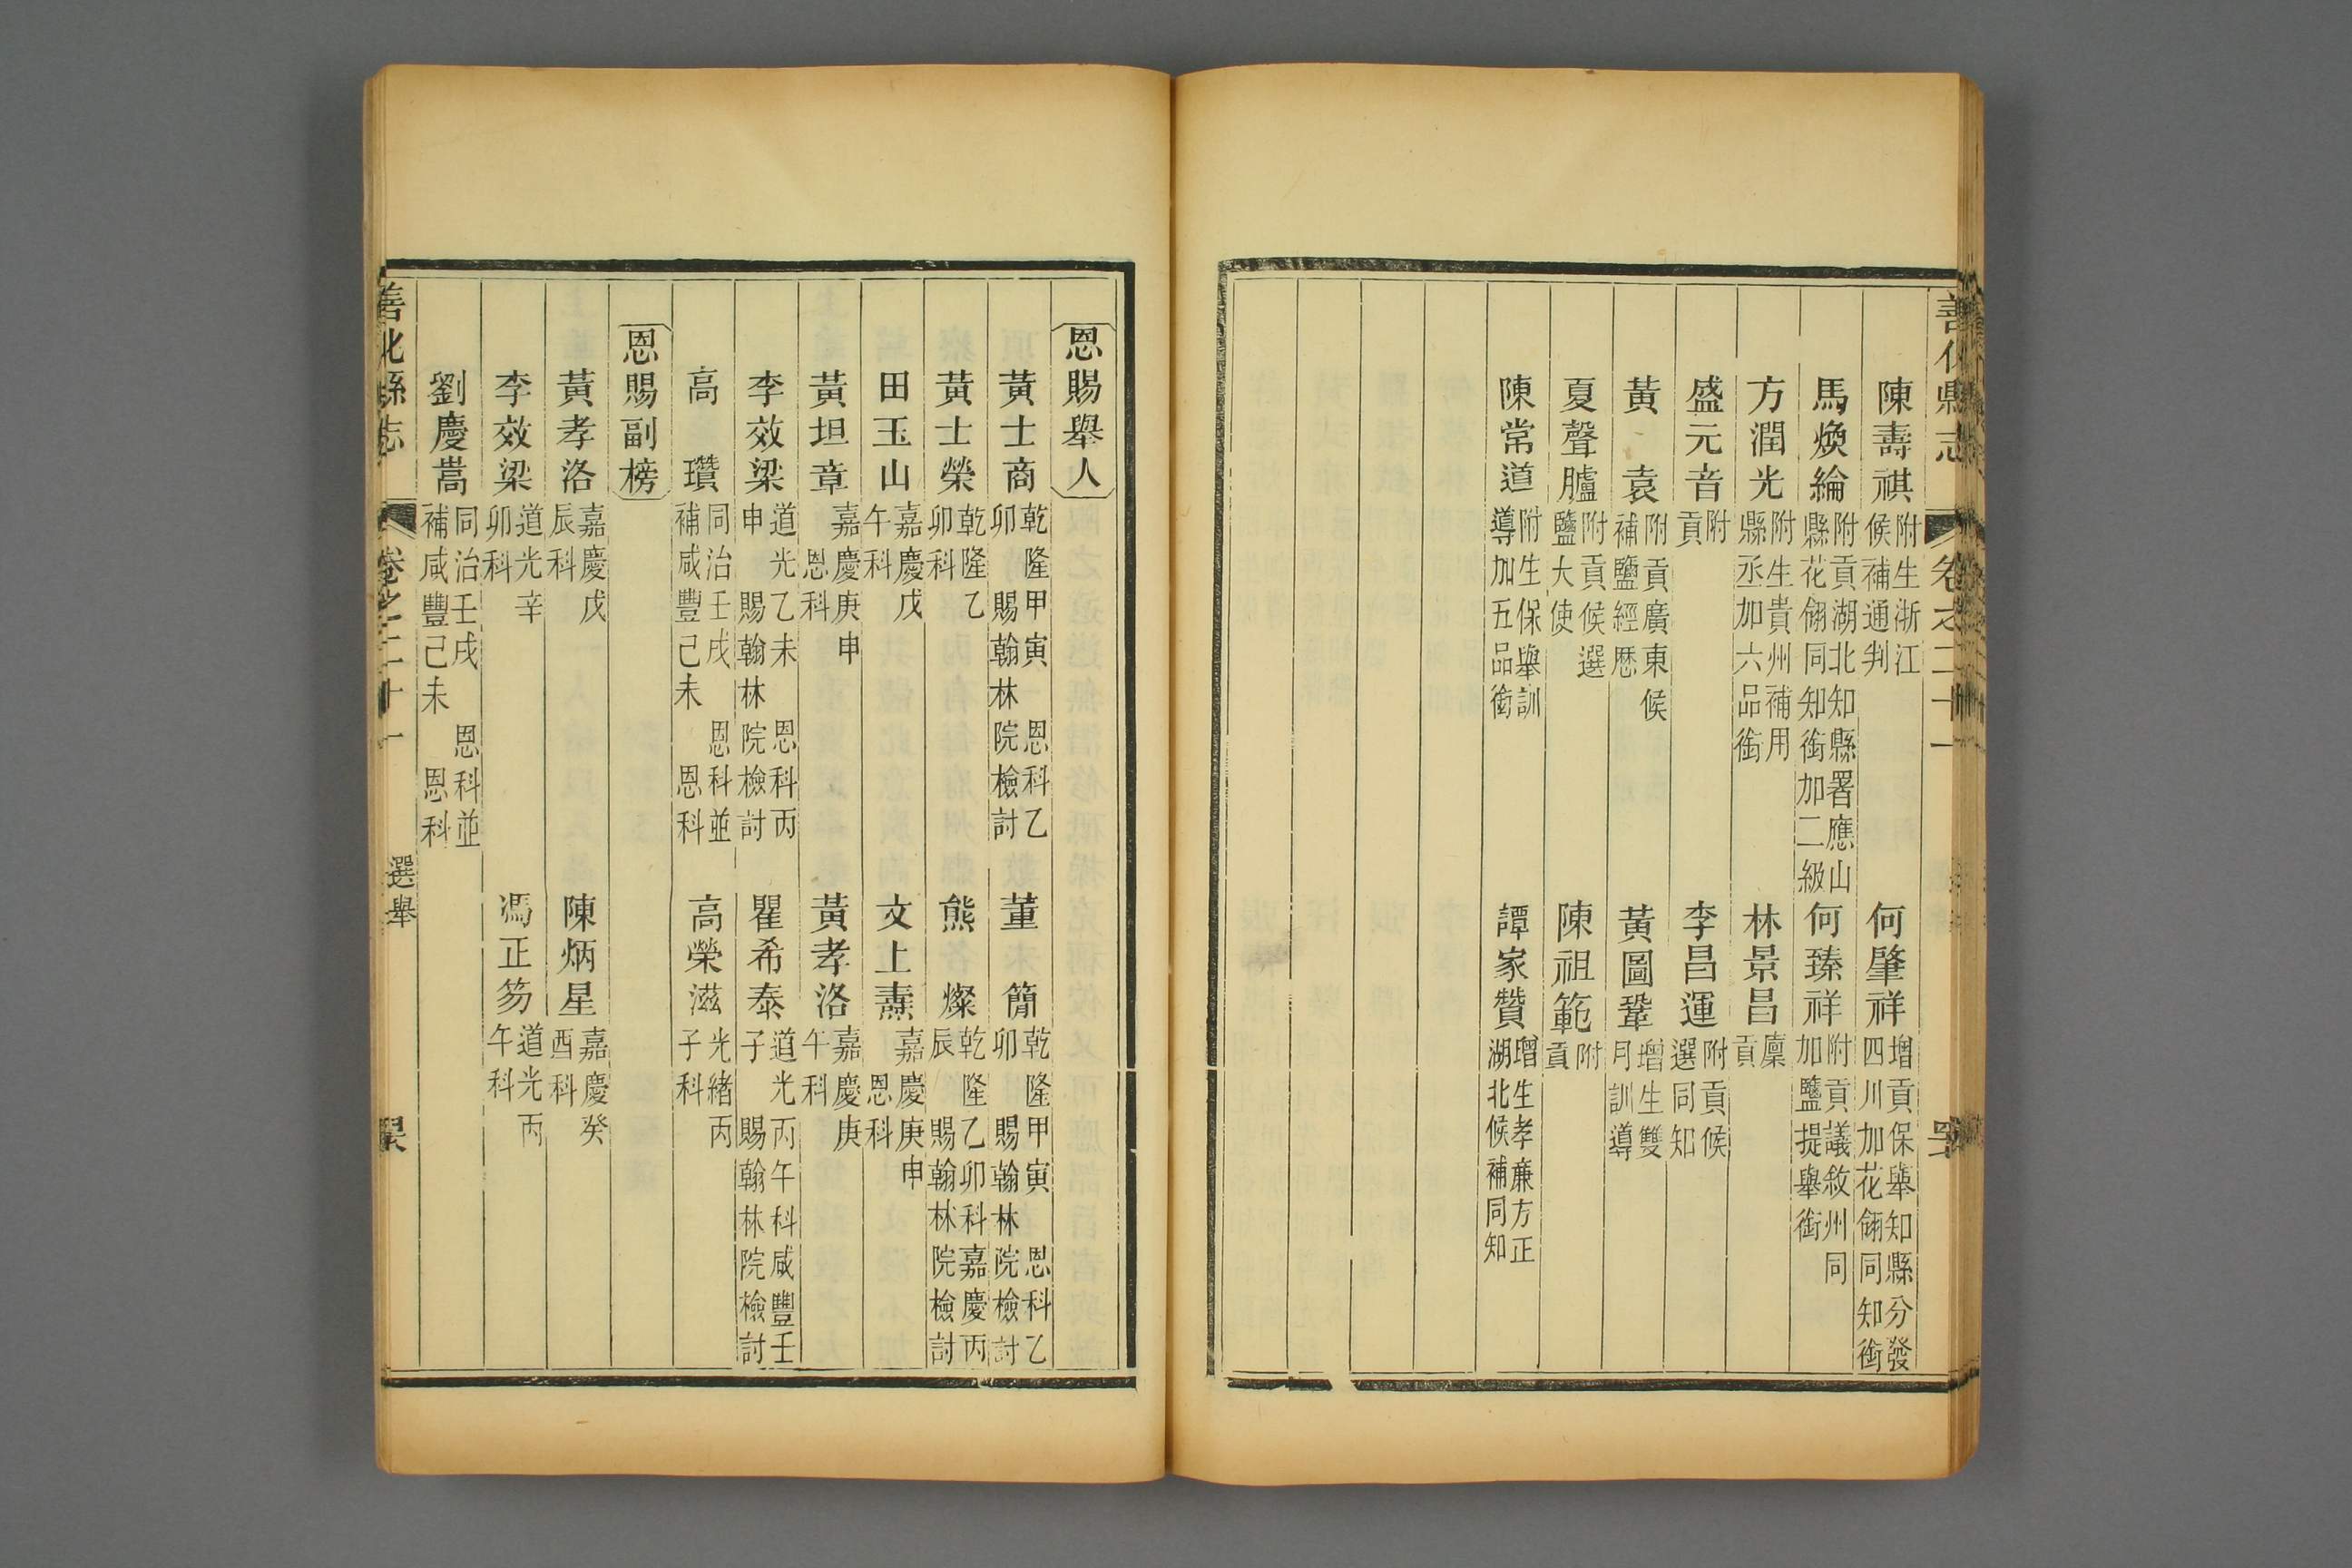 善化縣志 卷之二十一
陳壽祺 附生浙江候補通判 何肇祥 增貢保舉知縣分發四川加花翎同知銜
馬煥綸 附貢湖北知縣署應山縣花翎同知銜加二級 何臻祥 附貢議敘州同加鹽提舉銜
方潤光 附生貴州補用縣丞加六品銜 林景昌 廩貢
盛元音 附貢 李昌運 附貢候選同知
黃袁 附貢廣東候補鹽經歷 黃圖鞏 增生雙月訓導
夏聲臚 附貢候選鹽大使 陳祖範 附貢
陳常道 附生保舉訓導加五品銜 譚家贊 增生孝廉方正湖北候補同知
恩賜舉人
黃士商 乾隆甲寅恩科乙卯賜翰林院檢討 董簡 乾隆甲寅恩科乙卯賜翰林院檢討
黃士榮 乾隆乙卯科 熊燦 乾隆乙卯科嘉慶丙辰賜翰林院檢討
田玉山 嘉慶戊午科 文上燾 嘉慶庚申恩科
黃坦章 嘉慶庚申恩科 黃孝洛 嘉慶庚午科
李效梁 道光乙未恩科丙申賜翰林院檢討 瞿希泰 道光丙午科咸豐壬子賜翰林院檢討
高瓚 同治壬戌恩科並補咸豐己未恩科 高榮滋 光緒丙子科
恩賜副榜
黃孝洛 嘉慶戊辰科 陳炳星 嘉慶癸酉科
李效梁 道光辛卯科 馮正笏 道光丙午科
劉慶嵩 同治壬戌恩科並補咸豐己未恩科
善化縣志 卷之二十一 選舉